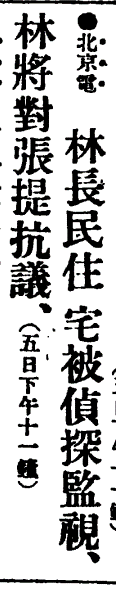 ●北京電 林長民住宅被偵探監視、
林將對張提抗議、(五日下午十一鐘)